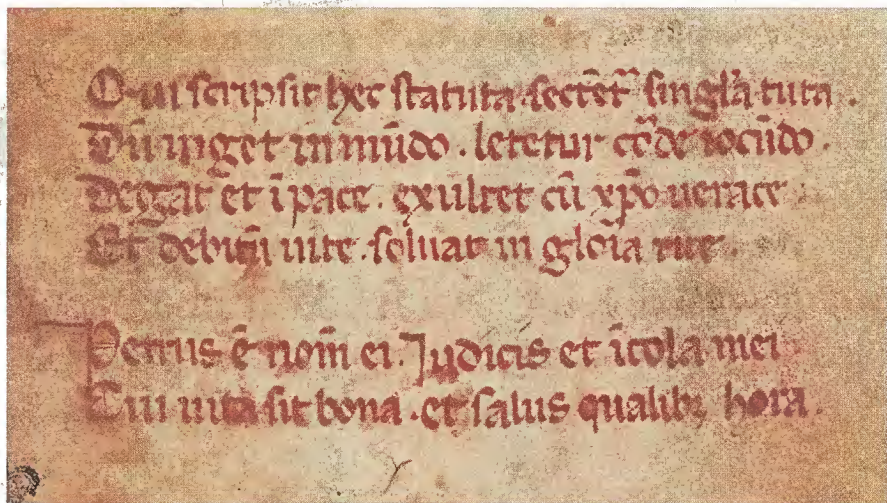 Qui scripsit hec statuta sectet᷑ singl'a tuta .
Dū uiget in mūdo . letetur co᷑de iocūdo .
Degat et ī pace . exultet cū xp̄o uerace .
Et debitū uite . soluat in gloīa rite .
Petrus ē nom̄ ei . Judicis et īcola mei
Cui uita sit bona . et salus qualibꝫ hora .